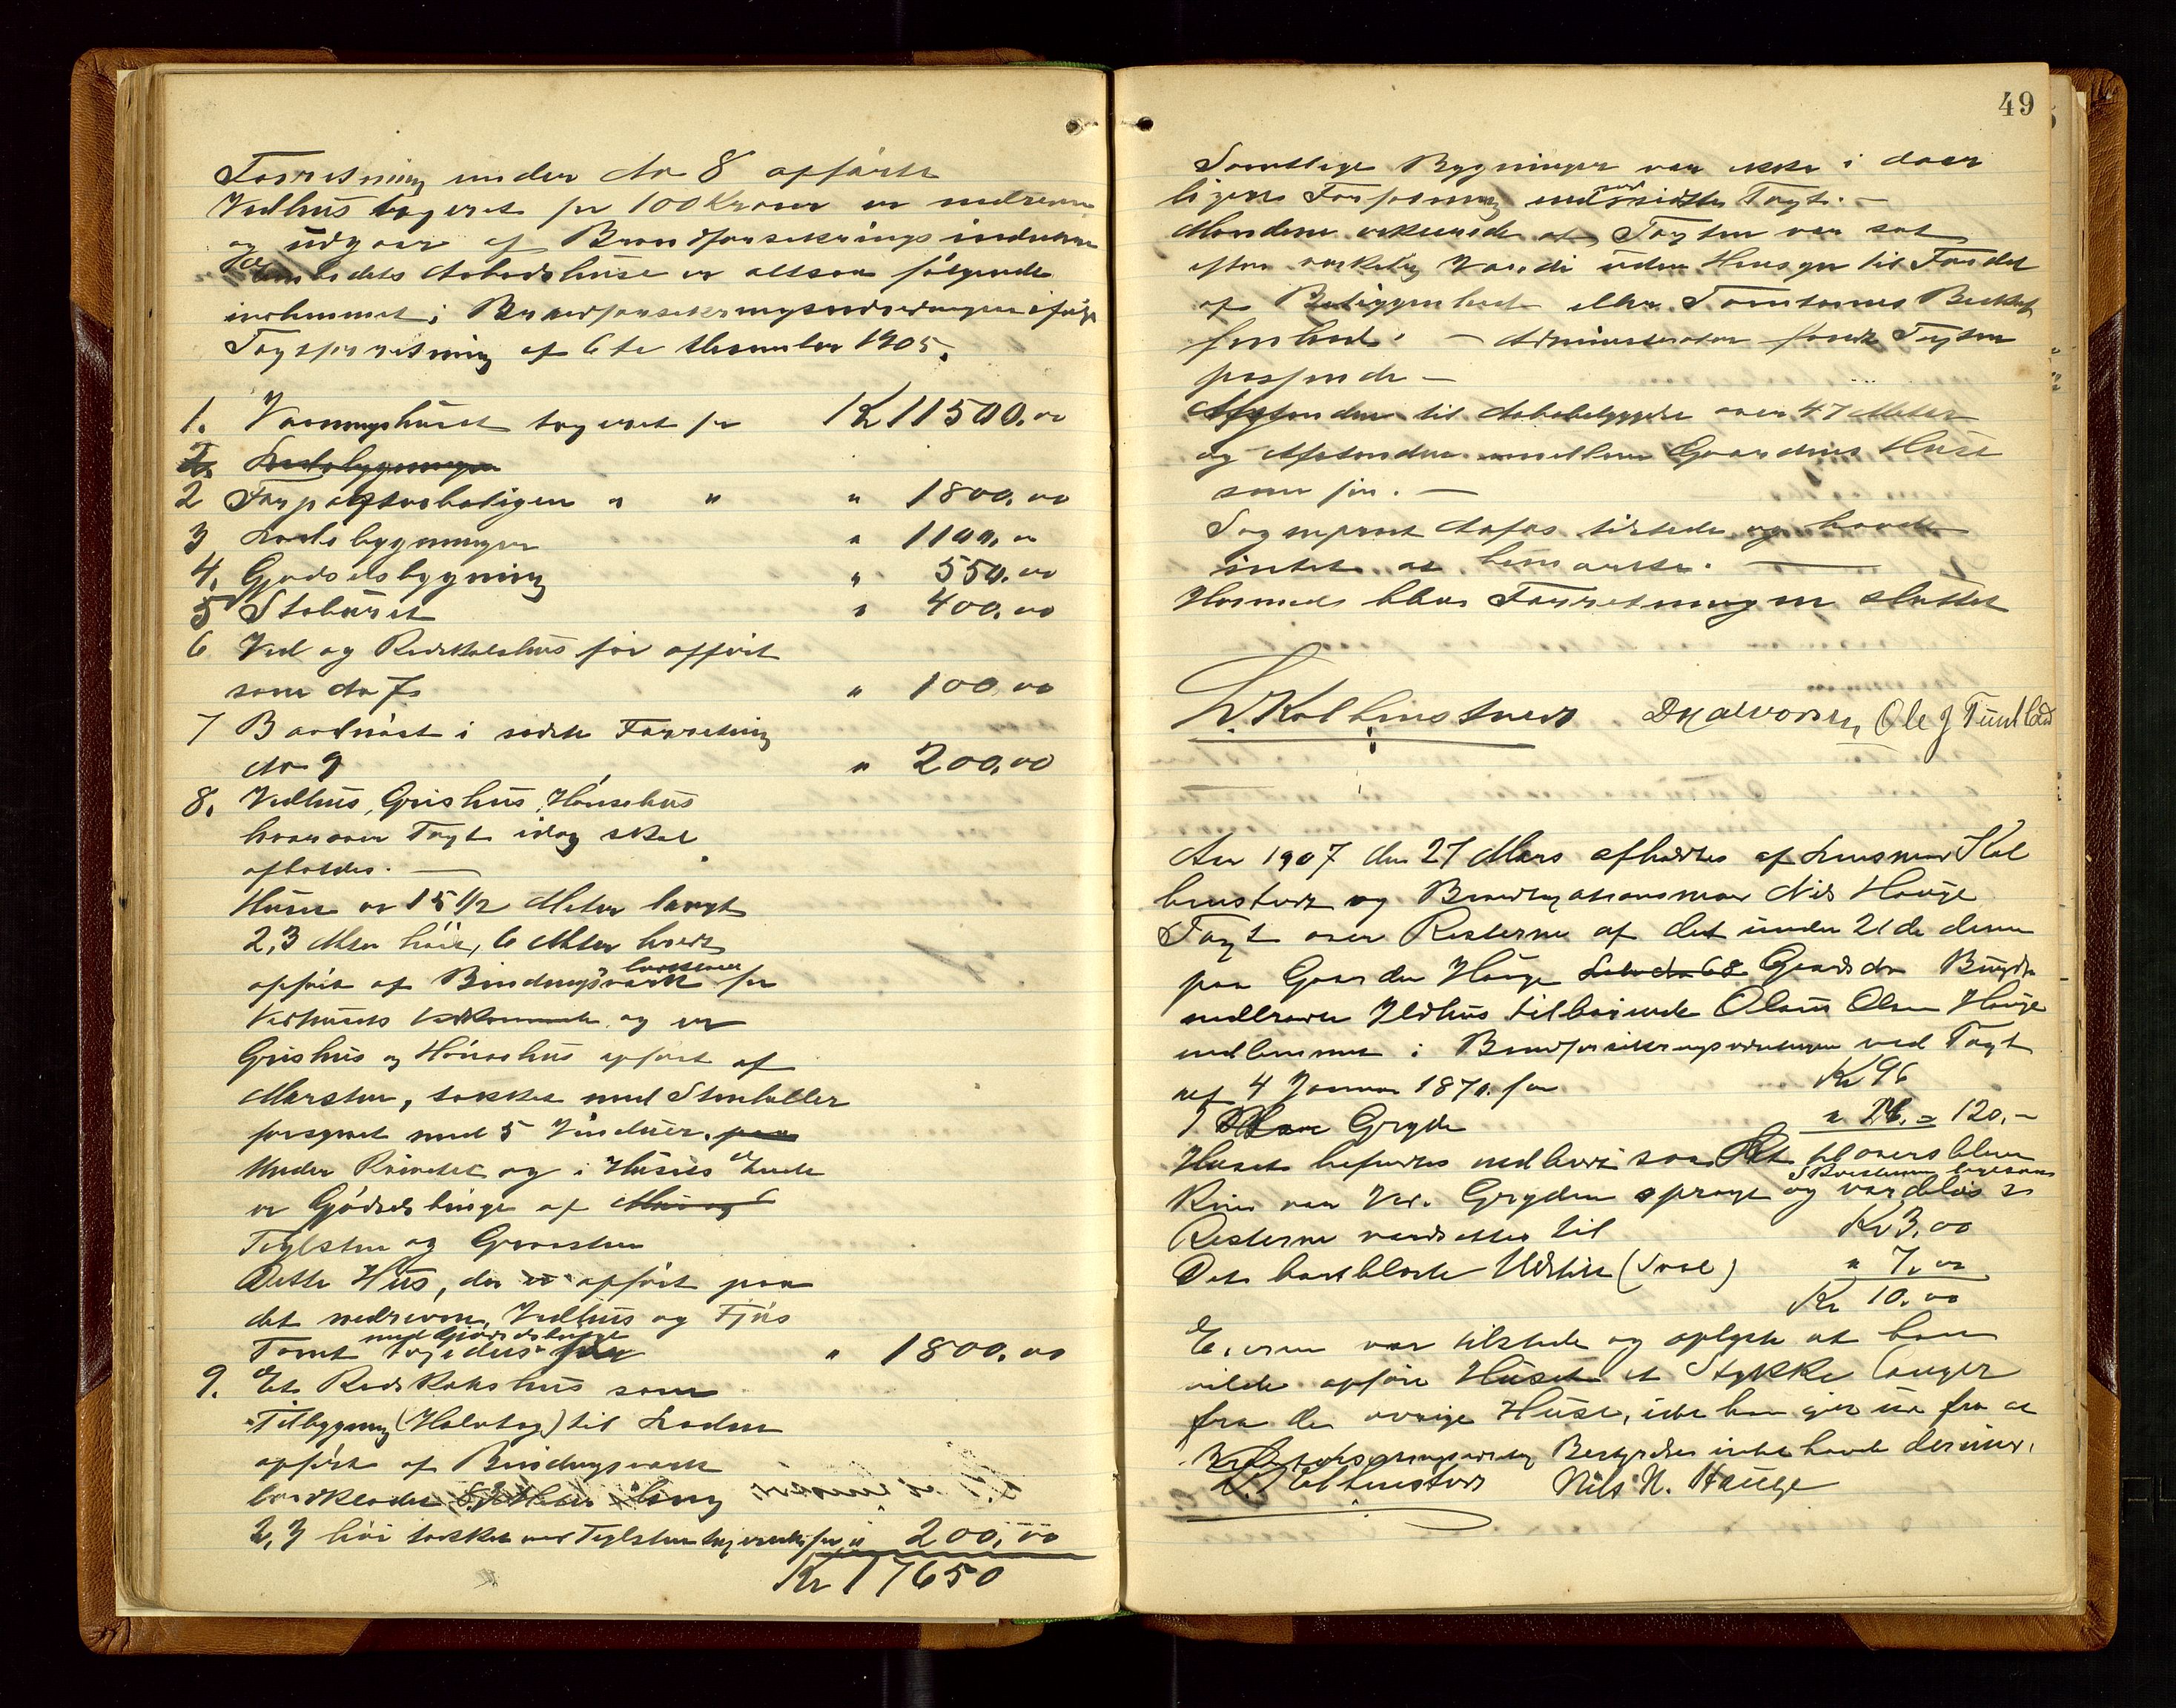 Forretning under No 8 opførte
Vedhus taxeret for 100 Kroner er nedreven
og udgaar af Brandforsikrings
Arbeidshuse er altsaa følgende
indlemmet i Brandforsikringsindretningen ifølge
Taxtforretning af 6te Desember 1905.
1. Vaaningshuset taxeret for Kr 11500.00
2. Ladebygningen
2 Forpagterboligen " " " 1800.00
3 Ladebygningen " 1100.00
4. Gjødselsbygning " 550.00
5 Staburet " 400.00
6 Ved og Redskabshus før opført
som No 7 " 100.00
7 Baadnøst i sidste Forretning
No 9 " 200.00
8. Vedhus, Grishus, Hønsehus
hvorover Taxt idag skal
afholdes. —
Huset er 15 1/2 Meter langt
2,3 Meter høit, 6 Meter bredt
opført af Bindingsværk bordklædt for
Vedhusets og er
Grishus og Hønsehus opført af
Mursten, tækket med Stenheller
forsynet med 5 Vinduer. paa
Under og i Husets Ende
er Gjødselsbinge af Mur og
Teglsten og Graasten
Dette Hus, der er opført paa
det nedrevne Vedhus og Fjøs
Tomt med Gjødselsbinge for " 1800.00
9. Et Redskabshus som
Tilbygning (Halvtag) til Laden
opført af Bindingsværk
bordklædt lang
2,3 høi tækket med Teglsten taxeret for " 200.00
Kr 17650
49
Samtlige Bygninger var ikke i daar
ligere Forfatning end ved sidste Taxt. —
Mændene erklærede at Taxten var sat
efter virkelig Værdi uden Hensyn til Fordel
af Beliggenhed eller Tomternes Beskaf
fenhed. — Administrator fandt Taxten
passende —
Afstanden til Nabobebyggelse over 47 Meter
og Afstanden mellem Gaardens Huse
som før. —
var tilstede og havde
intet at bemærke. —
Hermed blev Forretningen sluttet
Kolbenstvedt D Halvorsen Ole J Tuntland
Aar 1907 den 27 Mars afholdtes af Lensmand Kol
benstvedt og Brandtaxationsmand Nils Hauge
Taxt over Resterne af det under 21de denne
paa Gaarden Hauge Gaards No Brugs No
nedbrændte Ildhus tilhørende Olaus Olsen Hauge
indlemmet i Brandforsikringsindretningen ved Taxt
af 4 Januar 1870 for Kr 96
1 Gryde " 24. = 120,—
Huset befandtes nedbrændt saa Alt tilovers blevne
Kun var Ved. Gryden sprængt og værdeløs
Resterne værdsættes til Kr 3.00
Det (Svale) " 7.00
Kr 10.00
Eieren var tilstede og oplyste at han
vilde opføre Huset et Stykke længer
fra de øvrige Huse, idet han gik ud fra at
Bestyrelse intet havde derimod.
Kolbenstvedt Nils N. Hauge